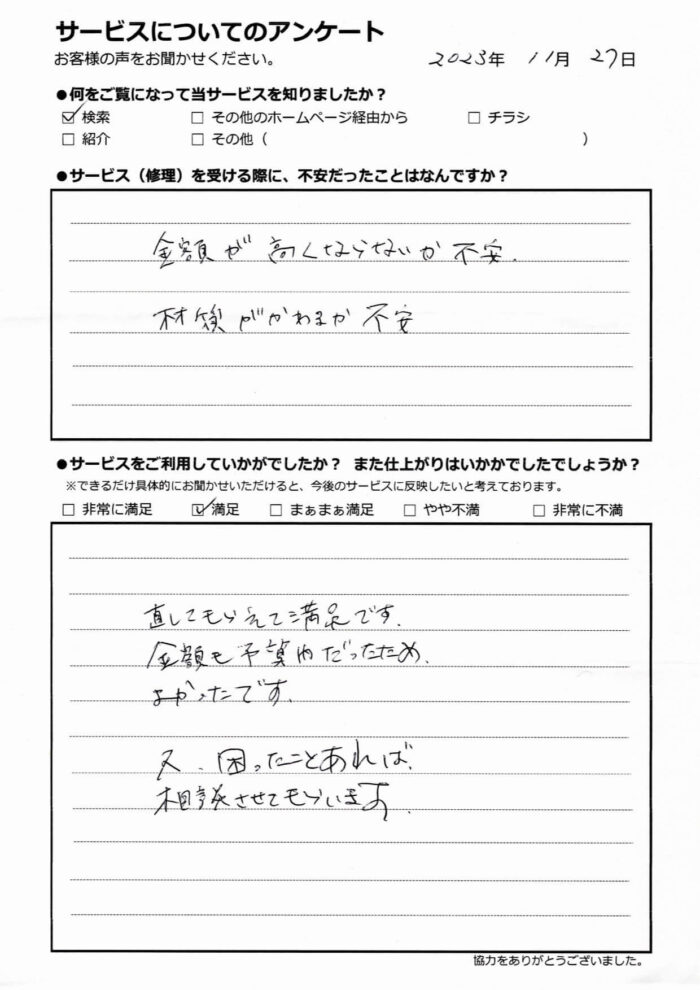 サービスについてのアンケート
お客様の声をお聞かせください。
2023年 11月 27日
●何をご覧になって当サービスを知りましたか？
☑ 検索 □ その他のホームページ経由から □ チラシ
□ 紹介 □ その他（ ）
●サービス（修理）を受ける際に、不安だったことはなんですか？
金額が高くならないか不安.
がかわるか不安
●サービスをご利用していかがでしたか？ また仕上がりはいかかでしたでしょうか？
※できるだけ具体的にお聞かせいただけると、今後のサービスに反映したいと考えております。
□ 非常に満足 ☑ 満足 □ まぁまぁ満足 □ やや不満 □ 非常に不満
直してもらえて満足です.
金額も予算内だったため.
よかったです.
又、困ったことあれば.
相談させてもらいます.
協力をありがとうございました。